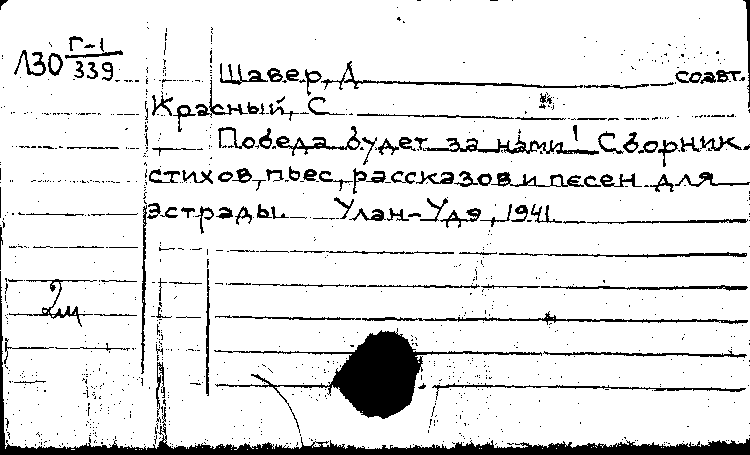 Л30 Г-1/339
Шавер, Д соавт.
Красный, С
Победа будет за нами! Сборник
стихов, пьес, рассказов и песен для
эстрады. Улан-Удэ, 1941
2м